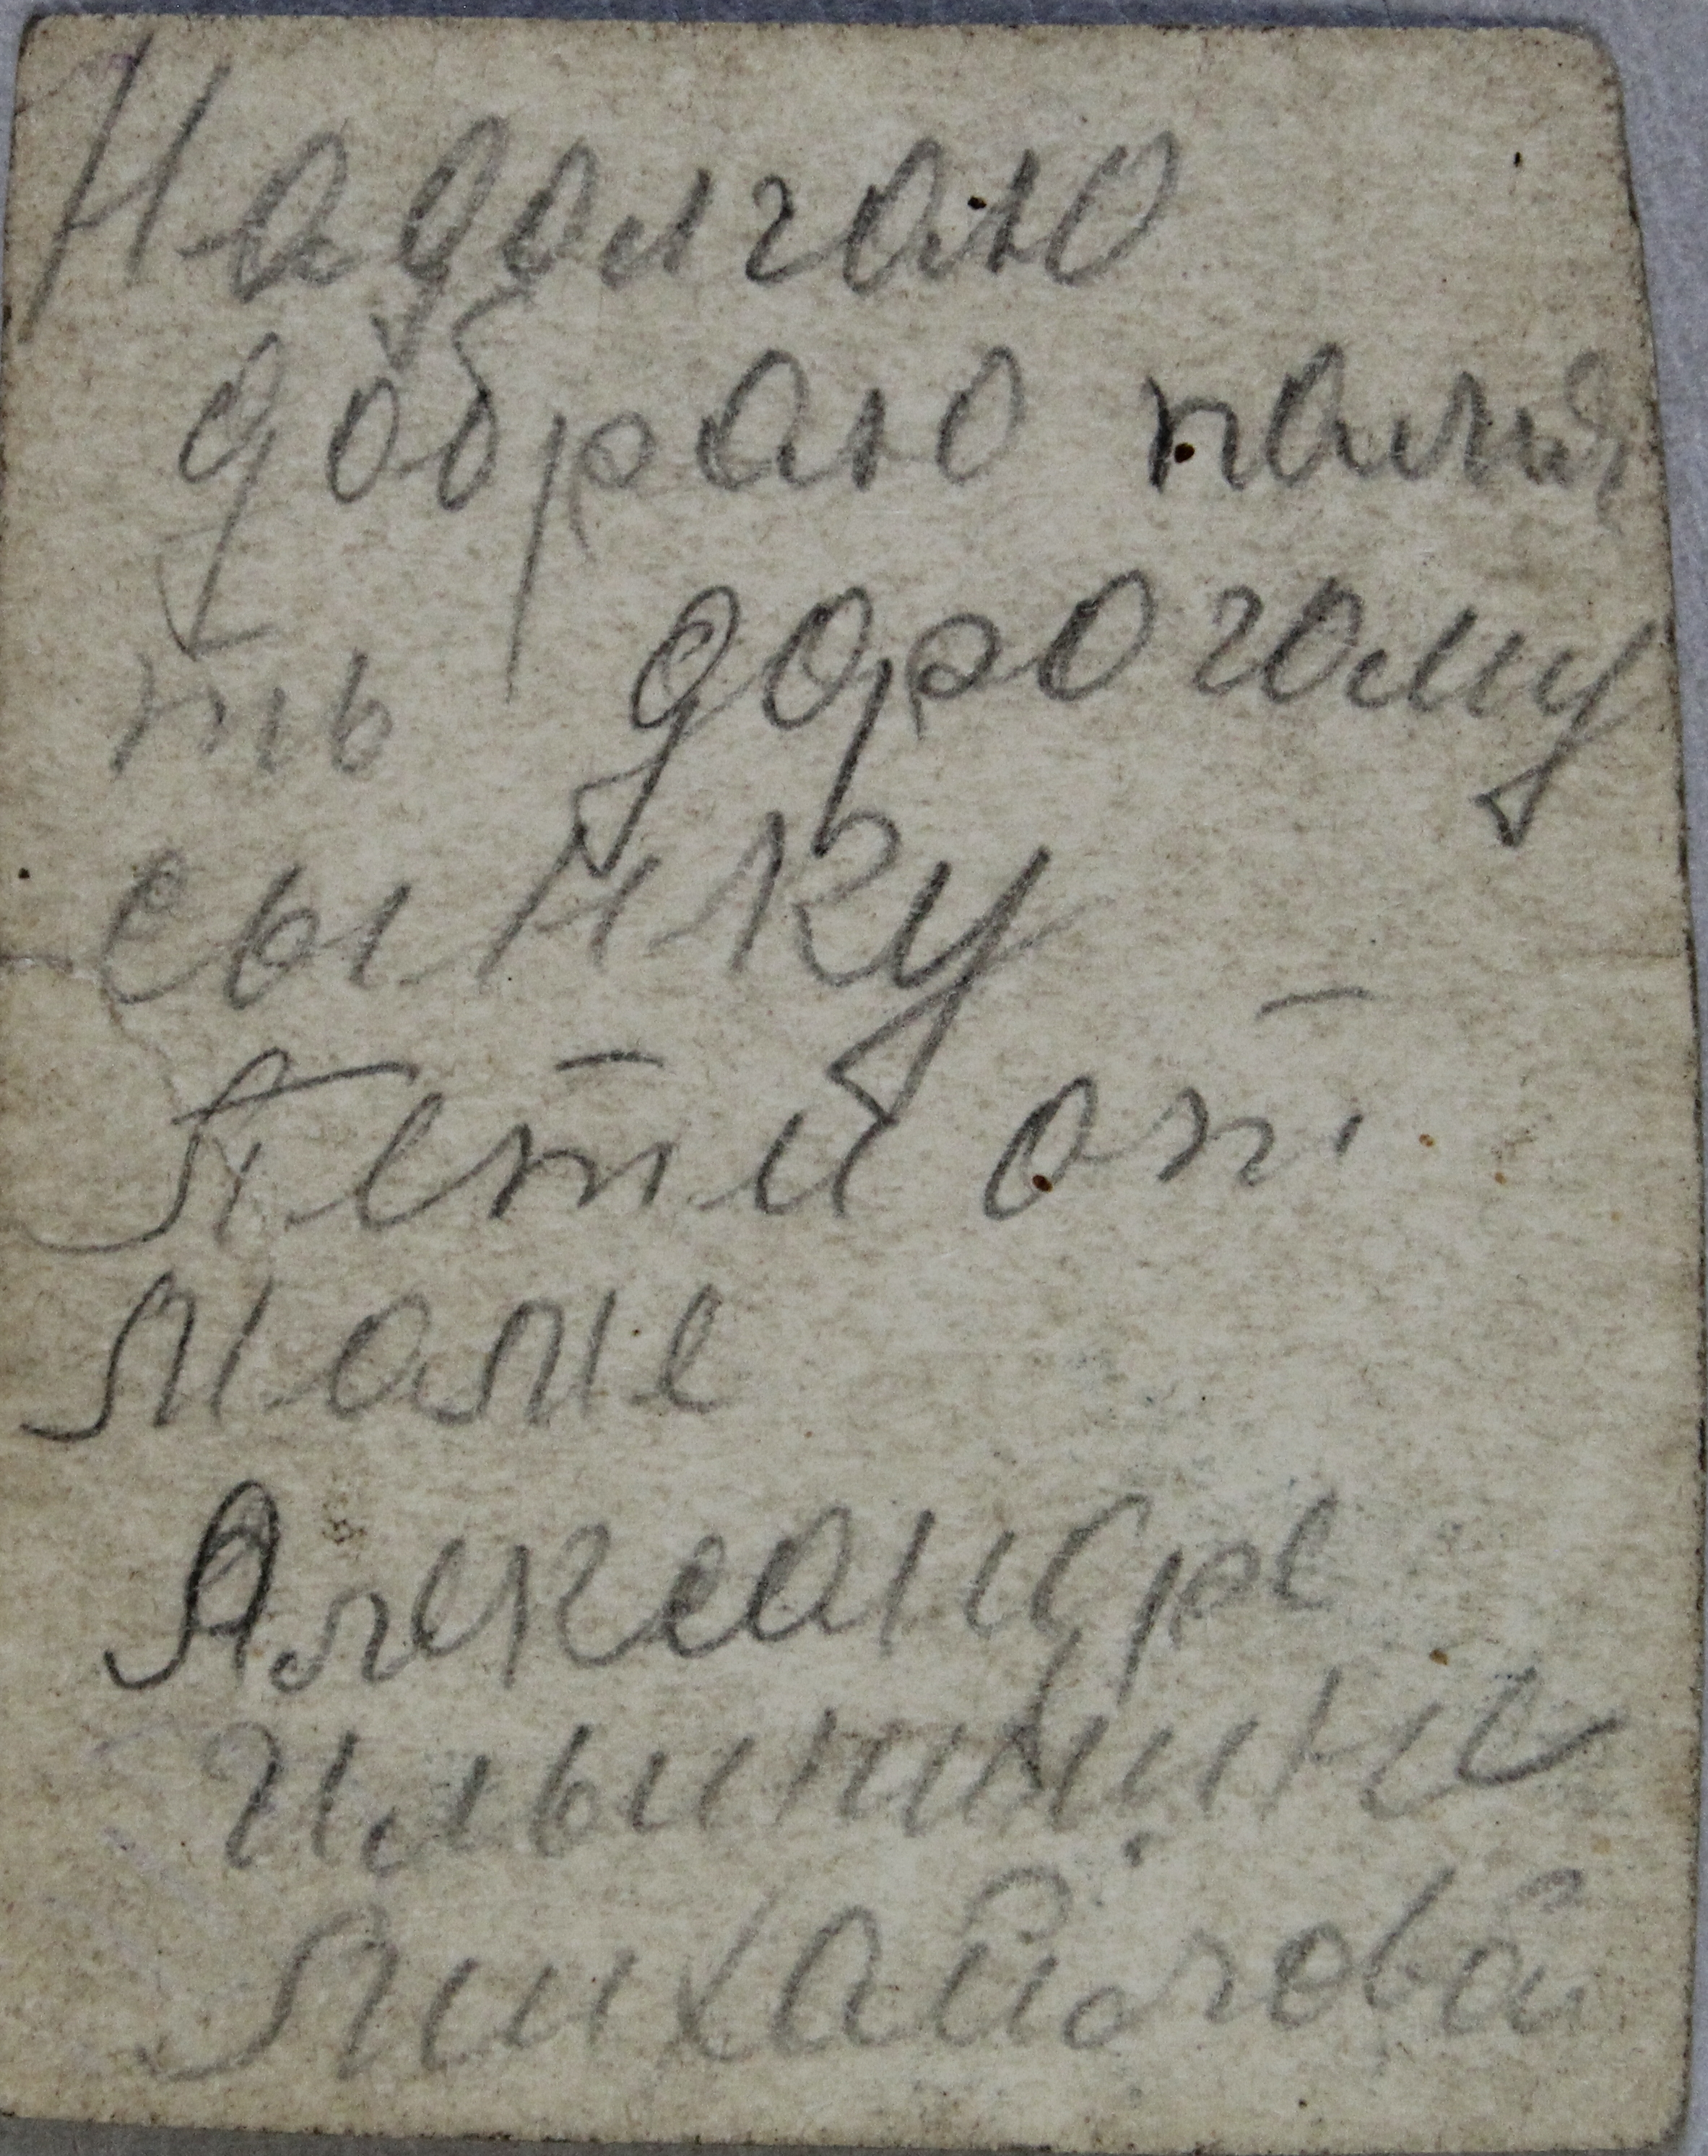 На долгою
добраю памя
ть дорогому
сынку
Пети от
маме
Алексанре
Ильиничне
Михайловой